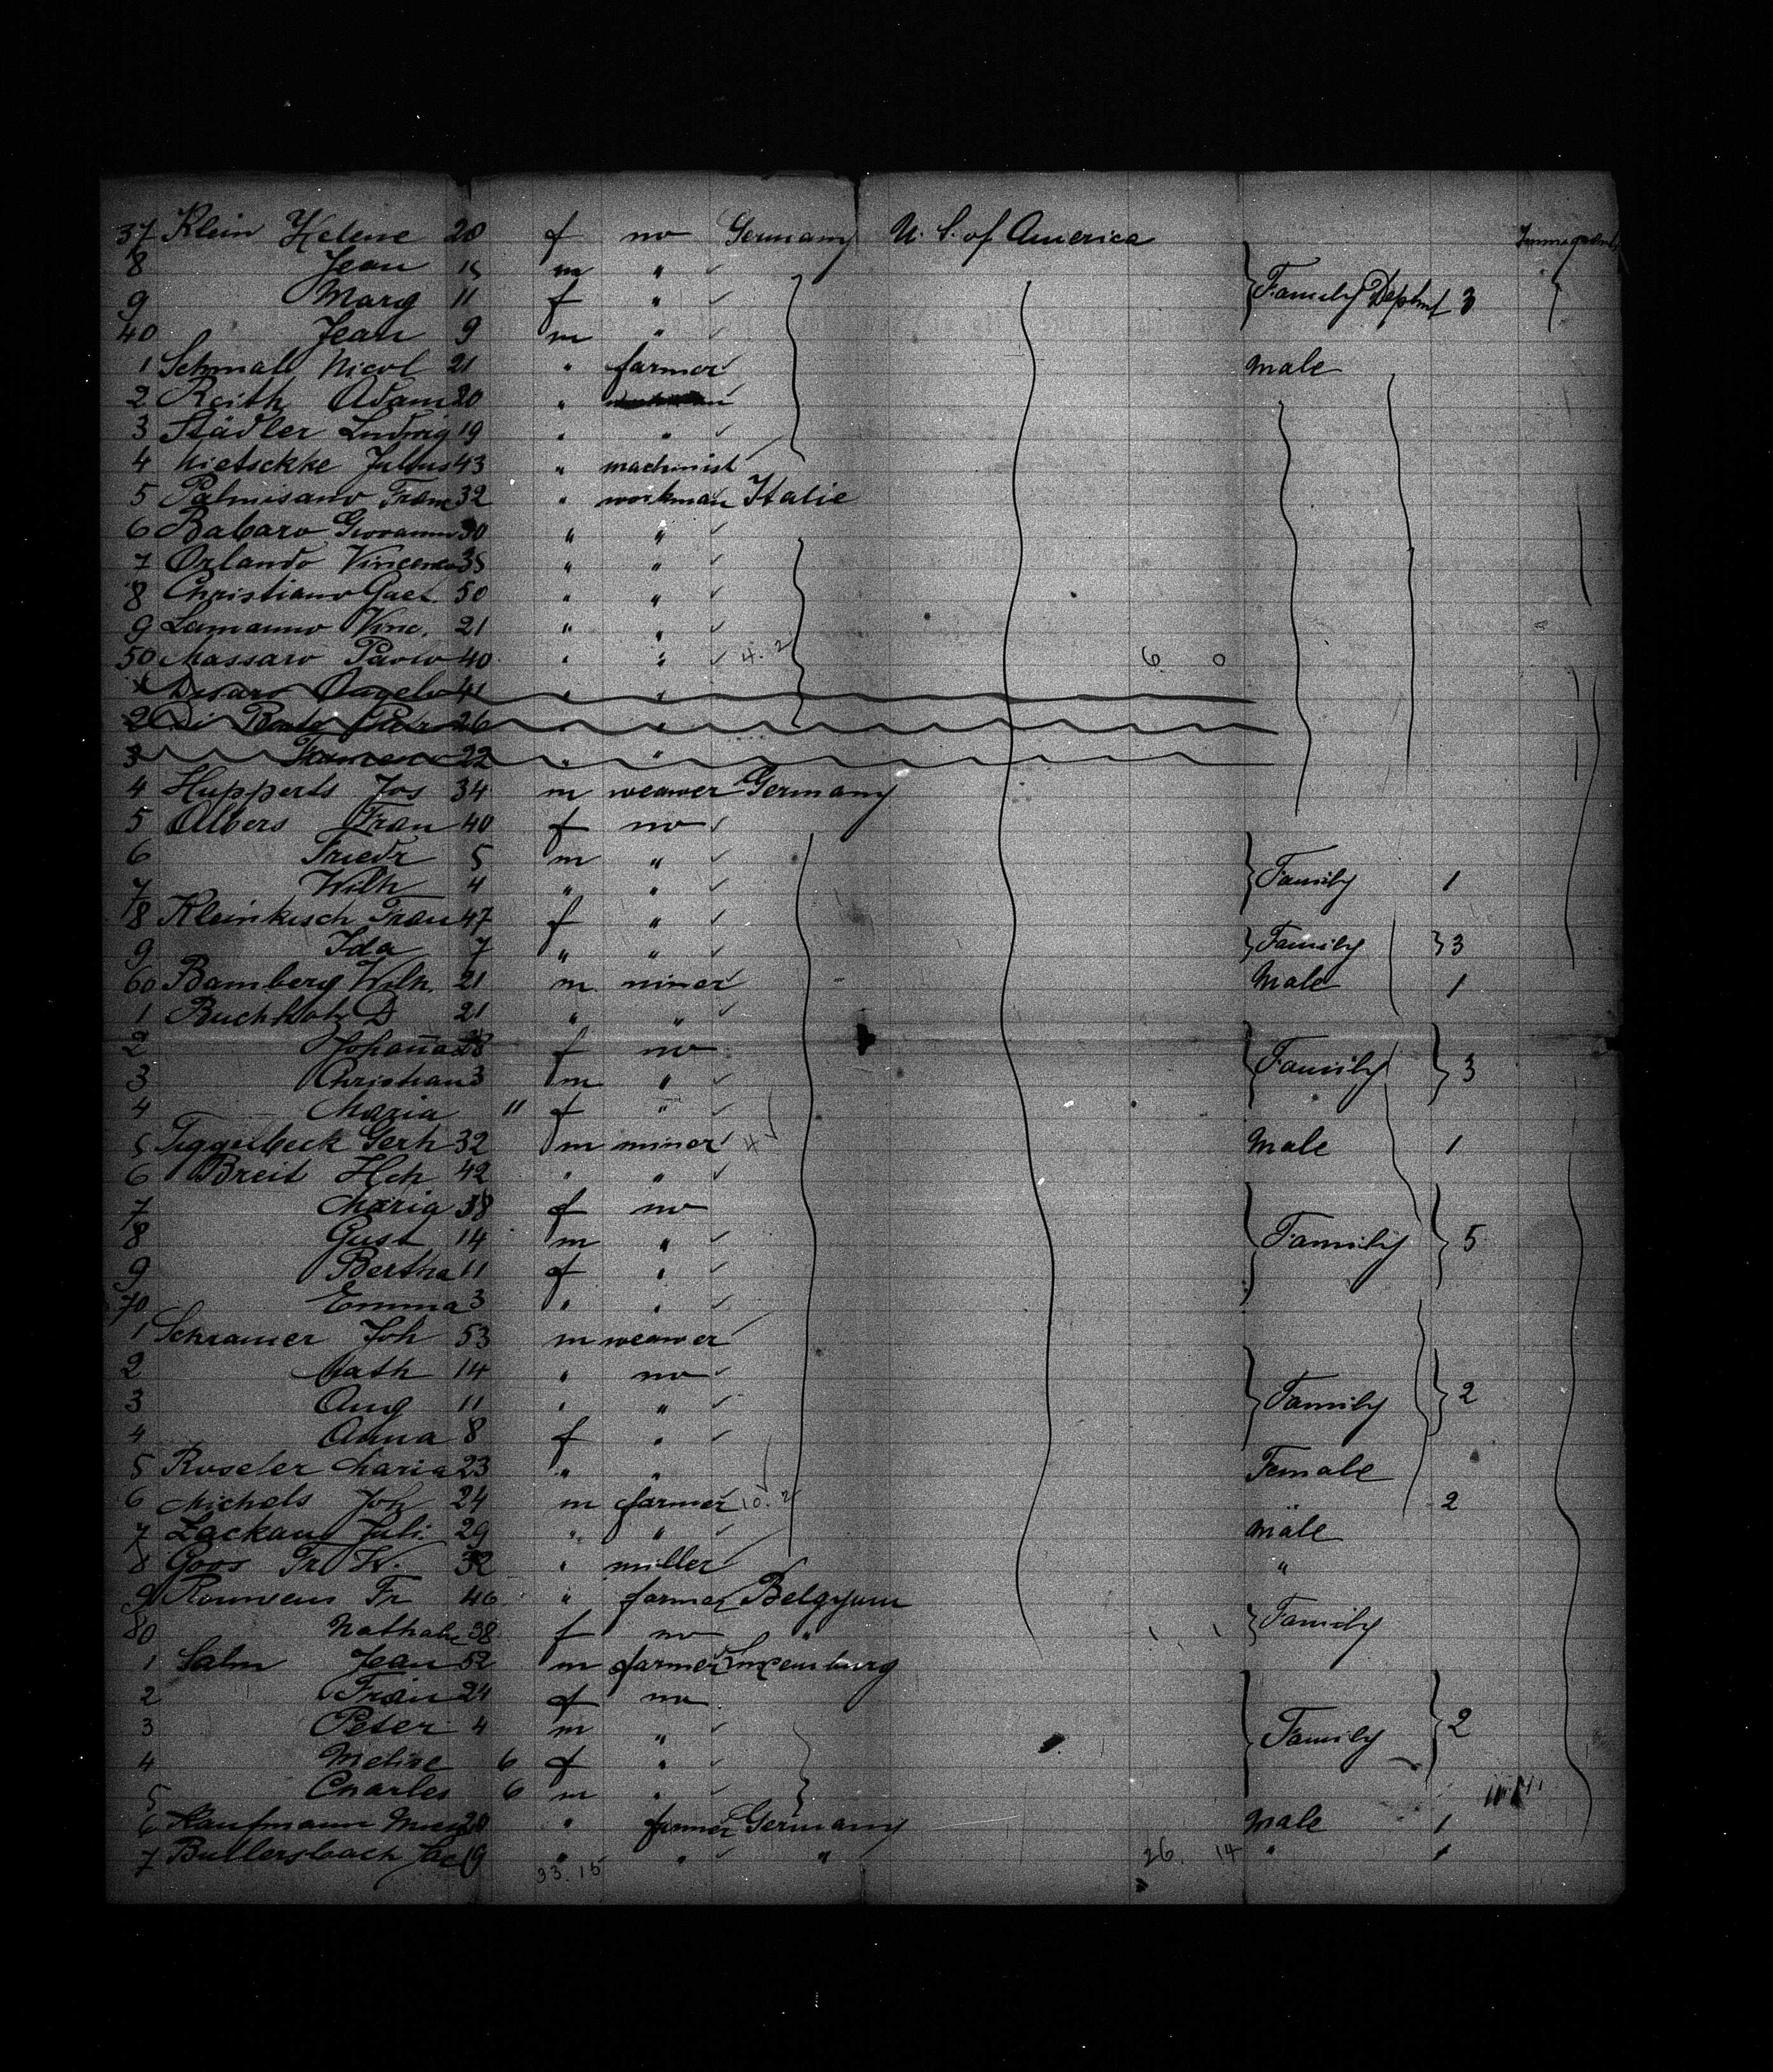 37 Klein Helene 20 f no Germany U. S. of America
8 Jean 15 m " Immigrants
9 Marg 11 f " Family Dephnt 3
40 Jean 9 m "
1 Schmal Nicol 21 " farmer male
2 Reith Adam 20 "
3 Städler Ludwig 19 " "
4 Nietsckke Julius 43 " machinist
5 Palmisano Franc 32 " workman Italie
6 Babaro Giovanni 30 " "
7 Orlando Vincenzo 35 " "
8 Christiano Gaet. 50 " "
9 Lamanno Vinc. 21 " "
50 Massaro Paolo 40 " " 4. 2 6. 0
Disaro Angelo 41 " "
2 Di 26 " "
3 22 " "
4 Hupperts Jos 34 m weawer Germany
5 Albers Frau 40 f no
6 Friedr 5 m "
7 Wilh 4 " " Family 1
8 Kleinkisch Frau 47 f "
9 Ida 7 " " Family 3
60 Bamberg Wilh. 21 m miner Male 1
1 Buchholz D 21 " "
2 Johanna 28 f no Family 3
3 Christian 3 m "
4 Maria 11 f "
5 Tiggelbeck Gerh 32 m miner 4 Male 1
6 Breit Hch 42 " "
7 Maria 38 f no
8 Gust 14 m " Family 5
9 Bertha 11 f "
70 Emma 3 " "
1 Schramer Joh 53 m weawer
2 Math 14 " no
3 Aug 11 " " Family 2
4 Anna 8 f "
5 Roseler Maria 23 " " Female
6 Michels Joh 24 m farmer 10. 2 " 2
7 Lackau Juli. 29 " " Male
8 Goos Fr W. 32 " miller "
9 Rouwens Fr 46 " farmer Belgyum
80 Nathalie 38 f no " Family
1 Salm Jean 52 m farmer Luxemburg
2 Frau 24 f no
3 Peter 4 m " Family 2
4 Melise 6 f "
5 Charles 6 m "
6 Kaufmann 20 " farmer Germany Male 1
7 Bullersbach Jac 19 " " " 26. 14 " 1
33. 15